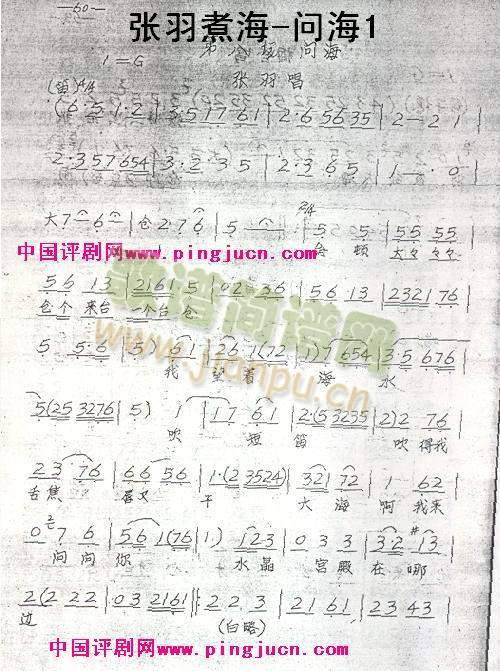 —60—
张羽煮海-问海1
问海
1=G
张羽唱
(6·5 1 2 | 3 5 1 7 6 1 | 2·6 5 6 3 5 | 2 — 2 1 |
2·3 5 7 6 5 4 | 3·2 3 5 | 2·3 6 5 | 1 — · 0 |
大 7 — 6 | 仓 2 7 6 | 5 — | 2/4 5 5 | 5 5 5 5 |
中国评剧网www.pingjucn.com
5 6 1 3 | 2 1 6 1 5 | 0 2 3 6 | 5 6 1 3 | 2 3 2 1 7 6 |
仓个 来台 一个台 仓
歌谱简谱网
www.jianpu.cn
5 5 6 | 5) 6 1 | 2 6 1 (7 2 | 1) 7 6 5 4 | 3·5 6 7 6 |
我 望着 海 水
5 (2 5 3 2 7 6 | 5) 1 | 1 7 6 1 | 2·(5 3 2 3 5 | 2) 2 7 6 |
吹 短 笛 吹 得我
2 3 7 6 | 6 6 5 6 | 1·(2 3 5 2 4) | 3 2 1 7 2 | 1 6 2 |
舌焦 唇又 干 大 海 啊 我来
0 7 6 | 5 6 1 (7 6 | 1) 1 2 3 | 0 3 3 | 3·2 #1 3 |
问 问 你 水晶 宫殿 在 哪
2 (2 2 2 | 0 3 2 1 6 1 | 2 2 3 | 2 1 6 1 | 2 3 4 3 |
边 (白略)
中国评剧网www.pingjucn.com